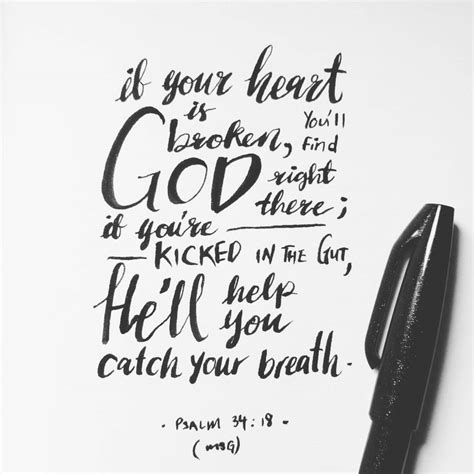 if your heart
is
broken, You'll find
GOD right there;
if you're
KICKED IN THE GUT,
He'll help you
catch your breath.
- PSALM 34:18 -
(MSG)